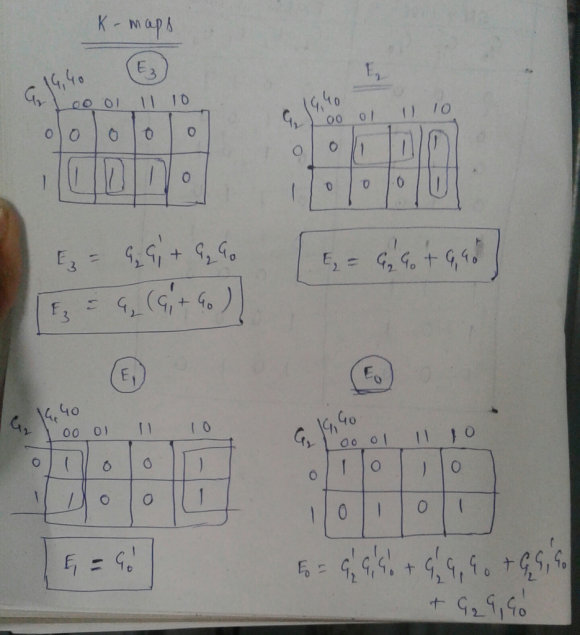 K-maps
E3
G2 \ G1G0
00 01 11 10
0 0 0 0 0
1 1 1 1 0
E3 = G2G1' + G2G0
E3 = G2(G1' + G0)
E2
G2 \ G1G0
00 01 11 10
0 0 1 1 1
1 0 0 0 1
E2 = G2'G0 + G1G0'
E1
G2 \ G1G0
00 01 11 10
0 1 0 0 1
1 1 0 0 1
E1 = G0'
E0
G2 \ G1G0
00 01 11 10
0 1 0 1 0
1 0 1 0 1
E0 = G2'G1'G0' + G2'G1G0 + G2G1'G0
+ G2G1G0'